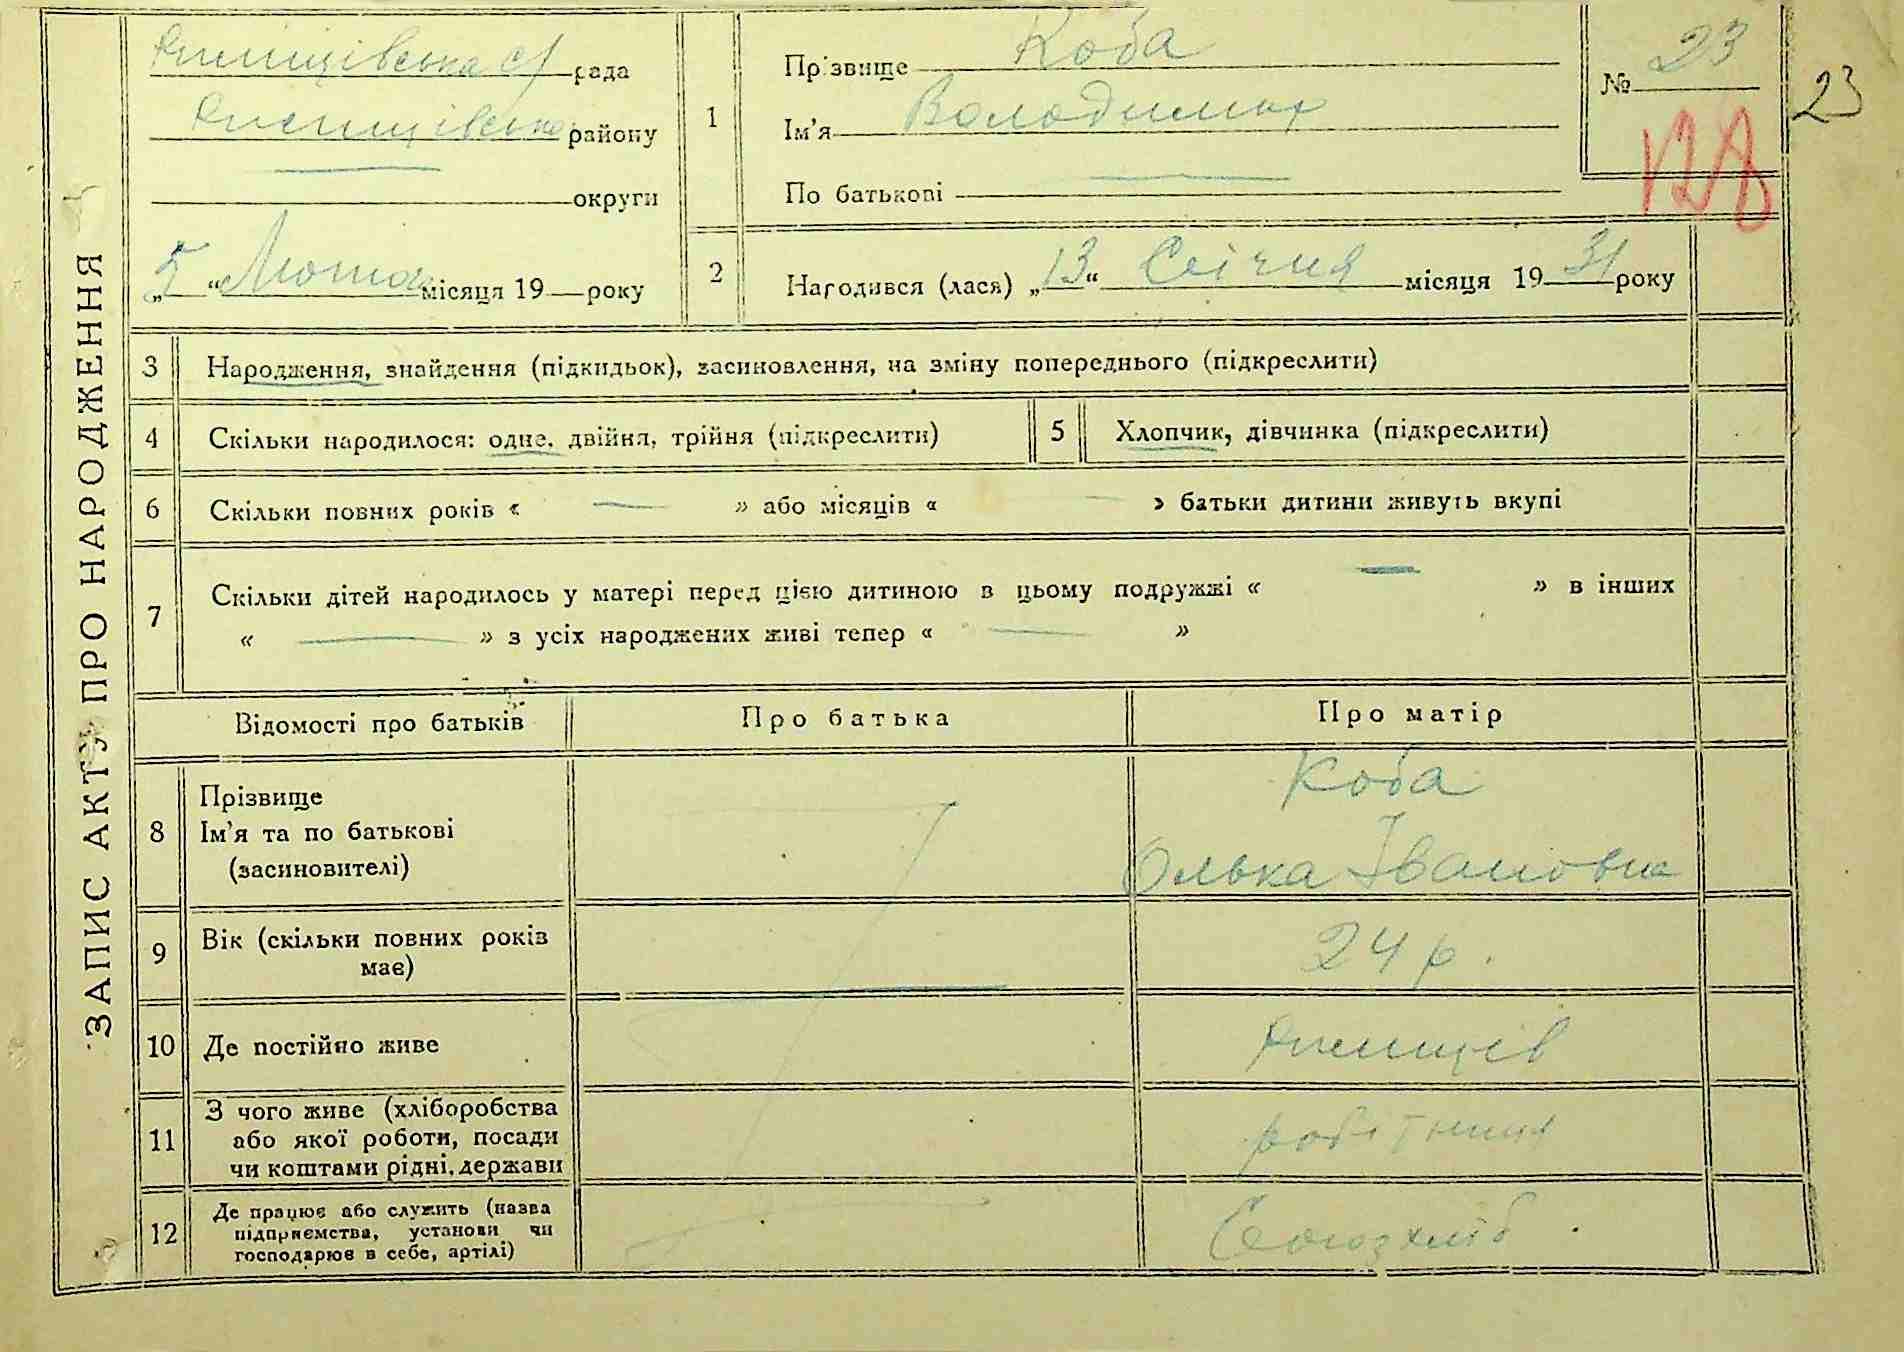 ЗАПИС АКТУ ПРО НАРОДЖЕННЯ
Ржищівська с/рада
Ржищівська району
округи
„5“ Лютого місяця 19 року
1
Прізвище Коба
Ім'я Володимир
По батькові
№ 23
23
2
Народився (лася) „13“ Січня місяця 1931 року
3 Народження, знайдення (підкидьок), засиновлення, на зміну попереднього (підкреслити)
4 Скільки народилося: одне, двійня, трійня (підкреслити)
5 Хлопчик, дівчинка (підкреслити)
6 Скільки повних років « — » або місяців « — » батьки дитини живуть вкупі
7 Скільки дітей народилось у матері перед цією дитиною в цьому подружжі « — » в інших
« — » з усіх народжених живі тепер « — »
Відомості про батьків Про батька Про матір
8 Прізвище
Ім'я та по батькові
(засиновителі)
Коба
Олька Івановна
9 Вік (скільки повних років
має)
24 р.
10 Де постійно живе Ржищів
11 З чого живе (хліборобства
або якої роботи, посади
чи коштами рідні, держави
робітниця
12 Де працює або служить (назва
підприємства, установи чи
господарює в себе, артілі)
Союзхліб.